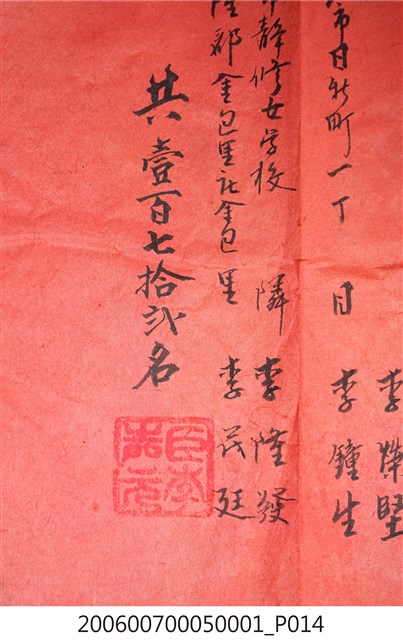 李
堅
市日新町一丁目 李鐘生
靜修女學校 隣 李隆發
郡金包里庄金包里 李茂廷
共壹百七拾弍名
200600700050001_P014